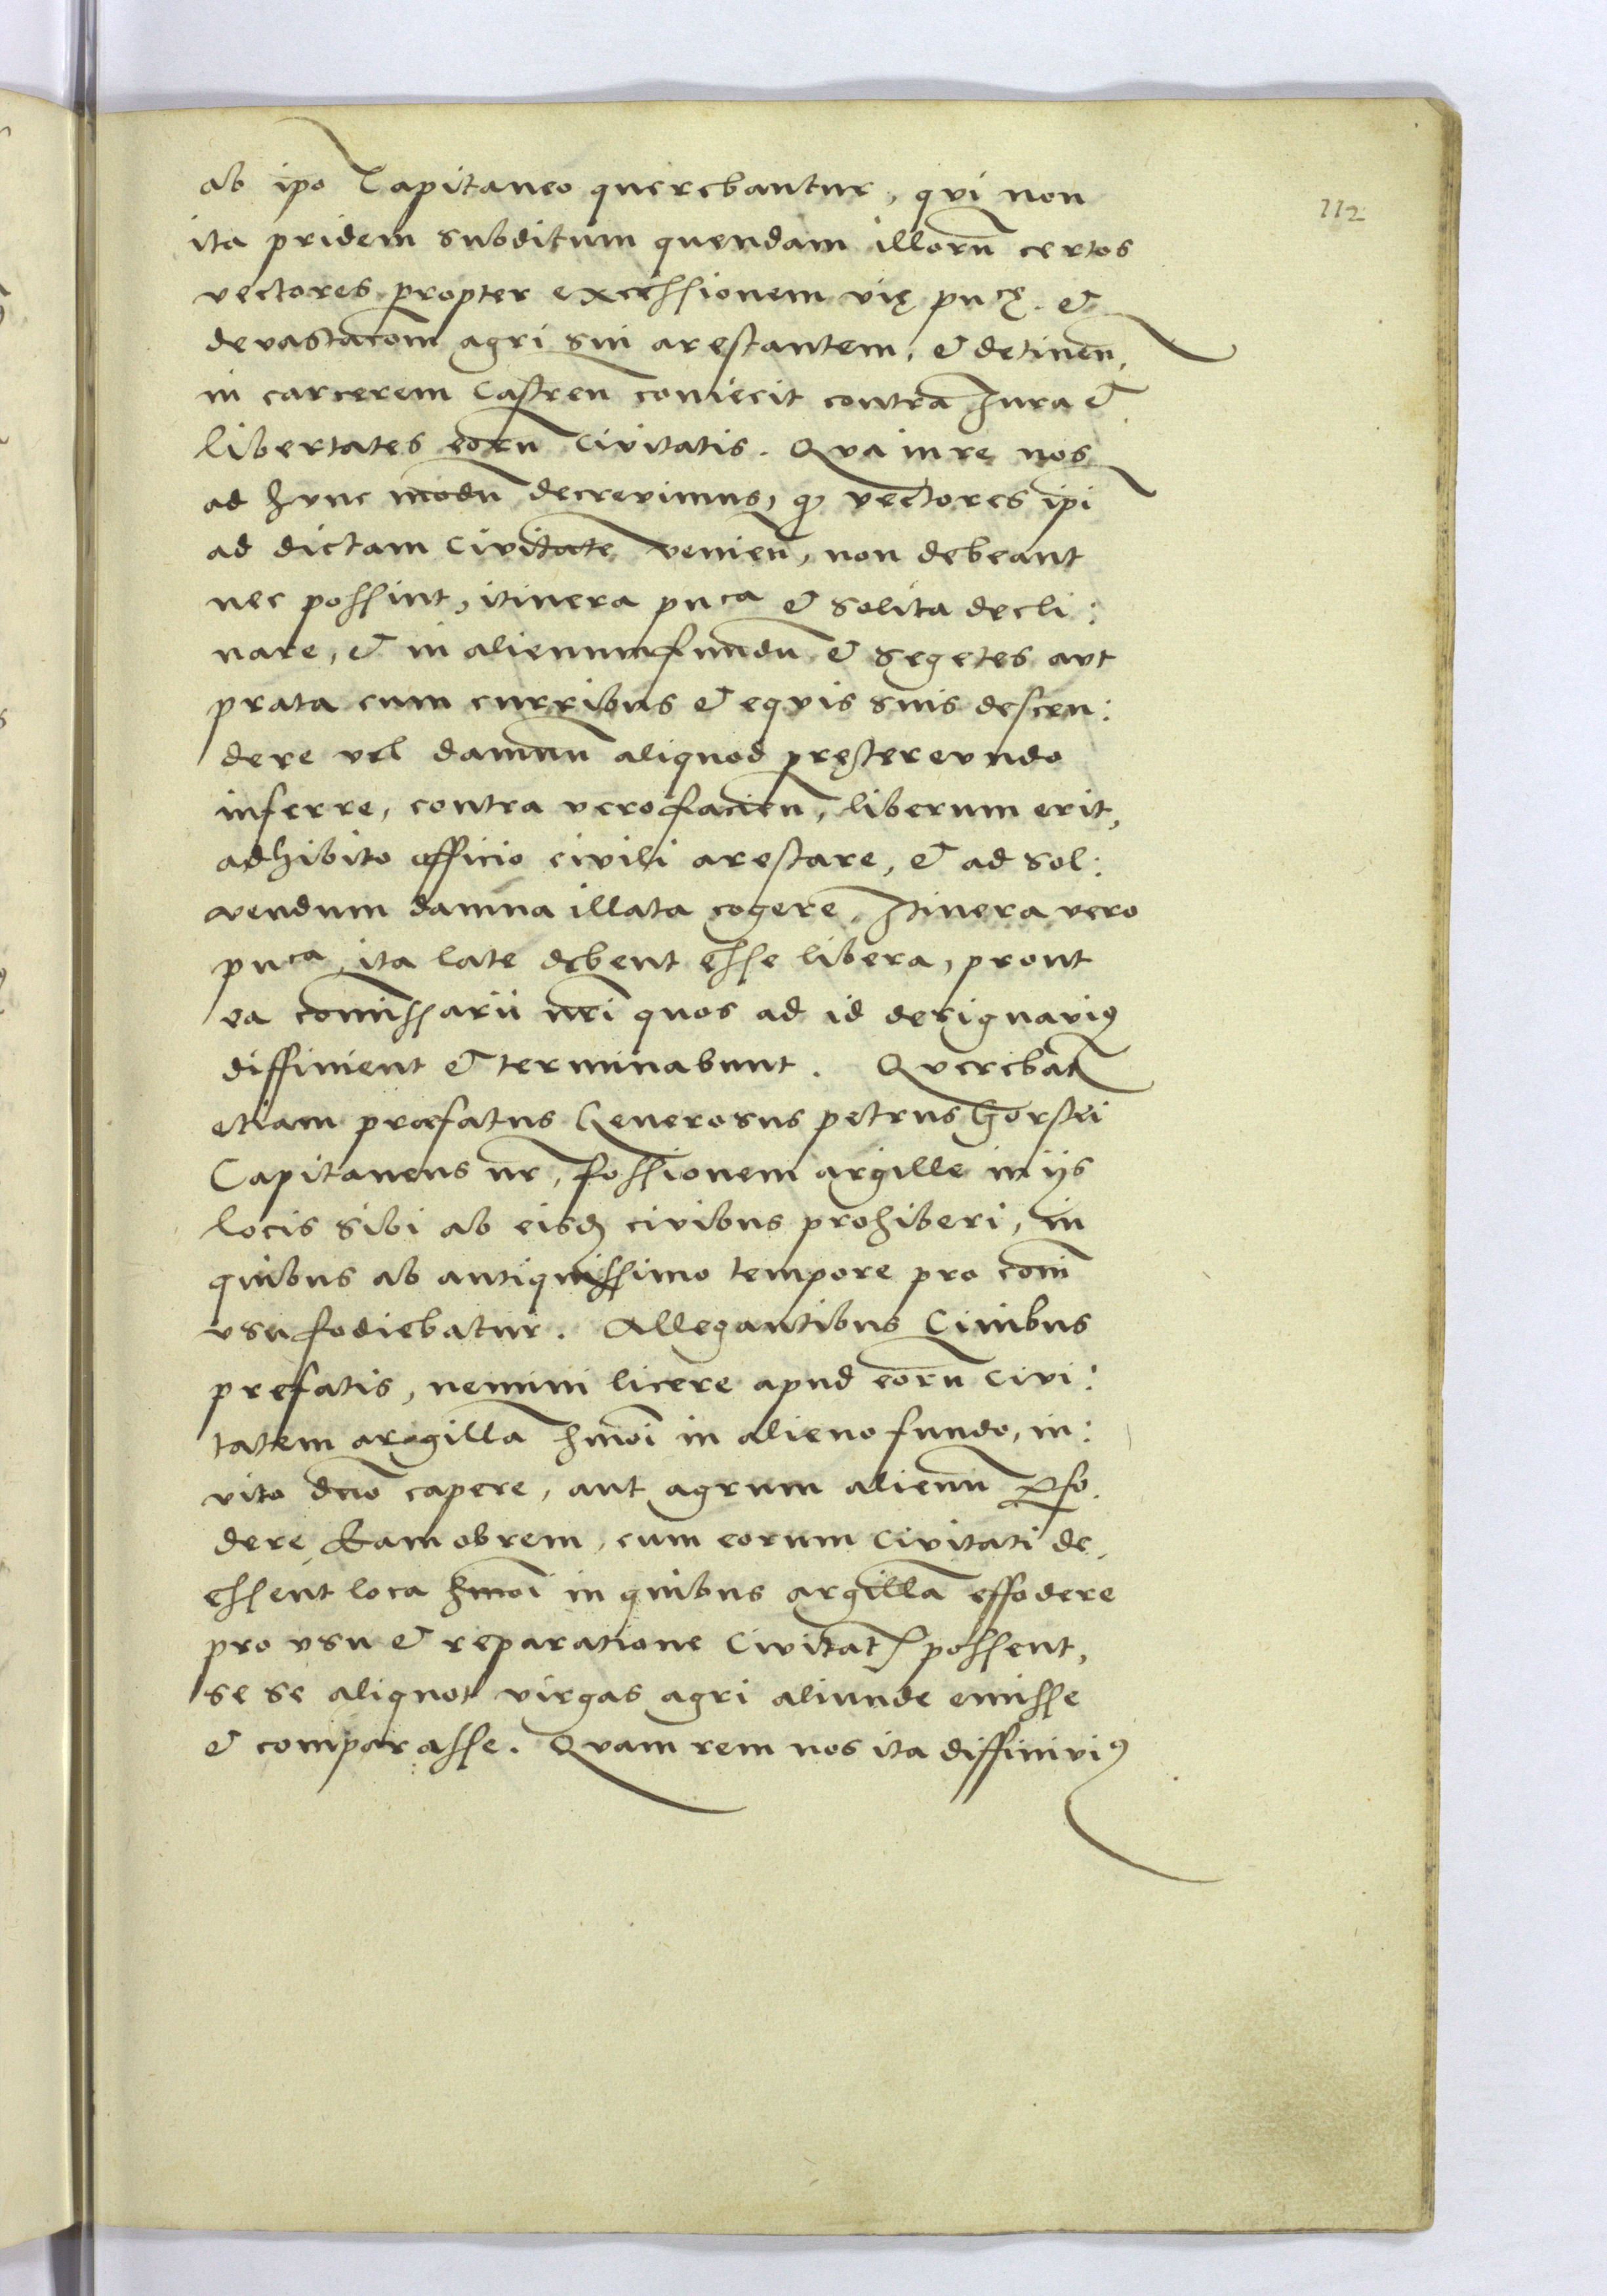 ab ipō Capitaneo querebantur, qui non
112
ita pridem subditum quendam illorū certos
vectores propter excessionem vię pucę. &
devastacōm agri sui arestantem, & detineñ,
in carcerem Castreñ coniecit contra Jura &
libertates eorū Civitatis. Qua in re nos
ad hunc modū decrevimus, ꝙ vectores ipi
ad dictam Civitatē venieñ, non debeant
nec possint, itinera puca & solita decli:
nare, & in alienum fundū & segetes aut
prata cum curribus & equis suis descen:
dere vel damnū aliquod prętereundo
inferre, contra vero facieñ, liberum erit,
adhibito officio civili arestare, & ad sol:
vendum damna illata cogere. Itinera vero
puca, ita late debent esse libera, prout
ea comissarii nri quos ad id designavi9
diffinient & terminabunt. Querebat̃
etiam præfatus Generosus petrus Gorski
Capitaneus nr̄, fossionem argille in ijs
locis sibi ab eisdꝫ civibus prohiberi, in
quibus ab antiquissimo tempore pro com̄
usu fodiebatur. Allegantibus Civibus
prefatis, nemini licere apud eorū Civi:
tatem argillā hmōi in alieno fundo, in:
vito dnō capere, aut agrum alienū ꝑfo.
dere, Quamobrem, cum eorum Civitati de,
essent loca hmōi in quibus argillā effodere
pro usu & reparatione Civitatꝭ possent,
se se aliquot virgas agri aliunde emisse
& comparasse. Quam rem nos ita diffinivi9